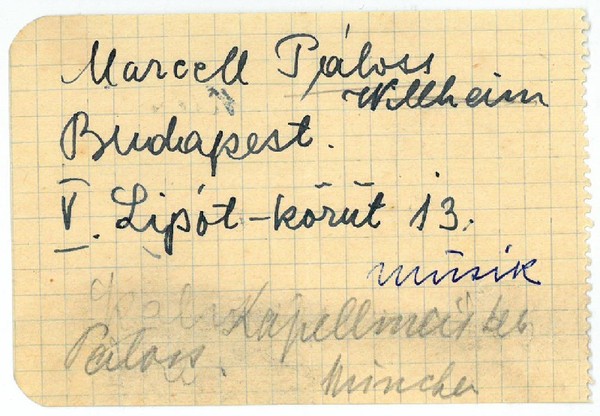 Marcell Páloss
Willheim
Budapest.
V. Lipót-körút 13.
Musik
Kapellmeister
Páloss.
München